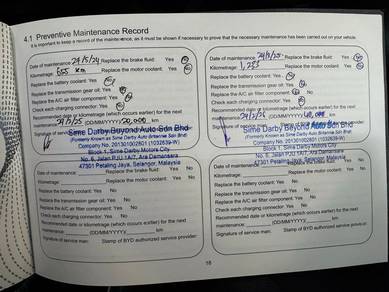 4.1 Preventive Maintenance Record
It is important to keep a record of the maintenance, as it must be shown if necessary to prove that the necessary maintenance has been carried out on your vehicle.
Date of maintenance: 24/5/24 Replace the brake fluid: Yes No
Kilometrage: 655 km Replace the motor coolant: Yes No
Replace the battery coolant: Yes No
Replace the transmission gear oil: Yes No
Replace the A/C air filter component: Yes No
Check each charging connector: Yes No
Recommended date or kilometrage (which occurs earlier) for the next
maintenance (DD/MM/YYYY) 20,000 km
Signature of service
Sime Darby Beyond Auto Sdn Bhd
(Formerly Known as Sime Darby Auto Britannia Sdn Bhd)
Company No. 201301002821 (1032639-W)
Block 1, Sime Darby Motors City
No. 6, Jalan PJU 1A/7, Ara Damansara
47301 Petaling Jaya, Selangor, Malaysia
Date of maintenance: Replace the brake fluid: Yes No
Kilometrage: Replace the motor coolant: Yes No
Replace the battery coolant: Yes No
Replace the transmission gear oil: Yes No
Replace the A/C air filter component: Yes No
Check each charging connector: Yes No
Recommended date or kilometrage (which occurs earlier) for the next
maintenance (DD/MM/YYYY) km
Signature of service man: Stamp of BYD authorized service provider:
Date of maintenance: Replace the brake fluid: Yes No
Kilometrage: Replace the motor coolant: Yes No
Replace the battery coolant: Yes No
Replace the transmission gear oil: Yes No
Replace the A/C air filter component: Yes No
Check each charging connector: Yes No
Recommended date or kilometrage (which occurs earlier) for the next
maintenance (DD/MM/YYYY) km
Signature of
Sime Darby Beyond Auto Sdn Bhd
(Formerly Known as Sime Darby Auto Britannia Sdn Bhd)
Company No. 201301002821 (1032639-W)
Block 1, Sime Darby Motors City
No. 6, Jalan PJU 1A/7, Ara Damansara
47301 Petaling Jaya, Selangor, Malaysia
Date of maintenance: Replace the brake fluid: Yes No
Kilometrage: Replace the motor coolant: Yes No
Replace the battery coolant: Yes No
Replace the transmission gear oil: Yes No
Replace the A/C air filter component: Yes No
Check each charging connector: Yes No
Recommended date or kilometrage (which occurs earlier) for the next
maintenance (DD/MM/YYYY) km
Signature of service man: Stamp of BYD authorized service provider:
18